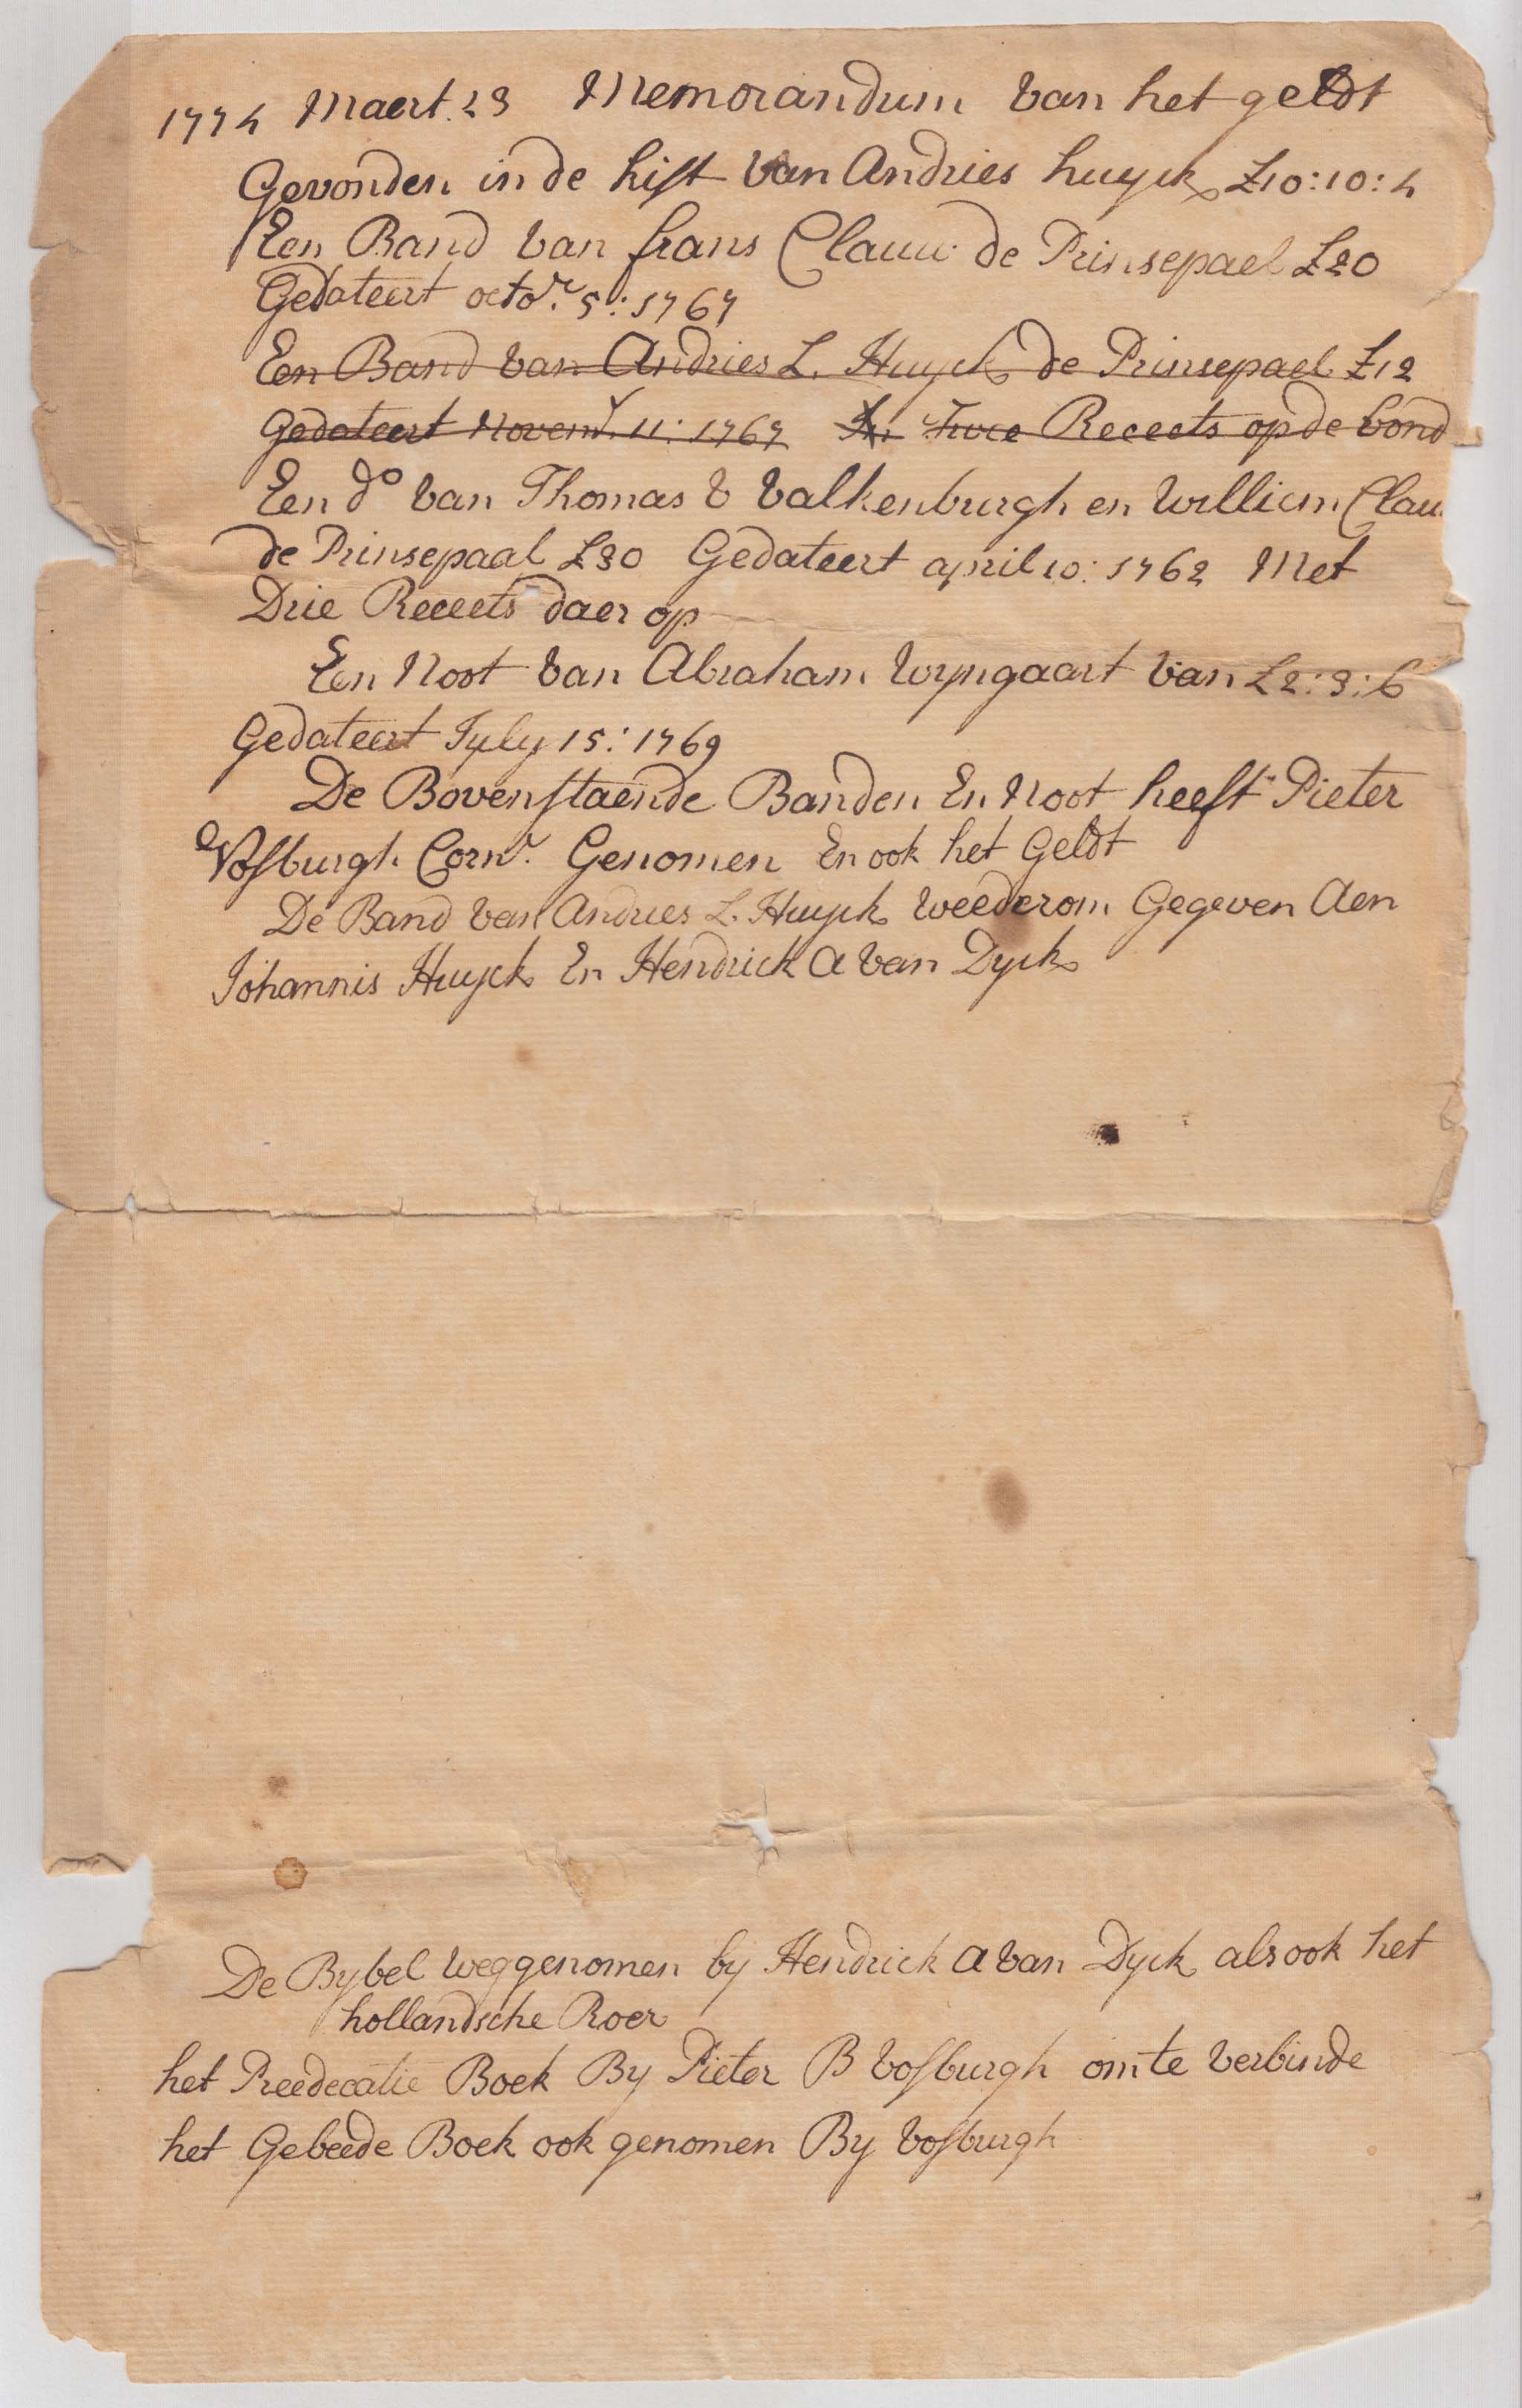 1774 Maert. 23 Memorandum van het geldt
Gevonden in de kist van Andries huyck £10:10:4
Een Band van frans Clauw de Prinsepael £20
Gedateert octor. 5: 1767
Een Band van Andries L. Huyck de Prinsepael £12
Gedateert Novemr. 11: 1767 Twee Receets op de bond
Een do van Thomas V Valkenburgh en Williem Clau
de Prinsepaal £30 Gedateert april 10: 1762 Met
Drie Receets daer op
Een Noot van Abraham Wyngaart van £2:3:6
Gedateert July 15: 1769
De Bovenstaende Banden En Noot heeft Pieter
Vosburgh Cornr. Genomen En ook het Geldt
De Band van Andries L. Huyck weederom Gegeven Aen
Johannis Huyck En Hendrick A van Dyck
De Bybel weggenomen by Hendrick A van Dyck als ook het
hollandsche Roer
het Preedecatie Boek By Pieter B Vosburgh om te verbinde
het Gebeede Boek ook genomen By Vosburgh